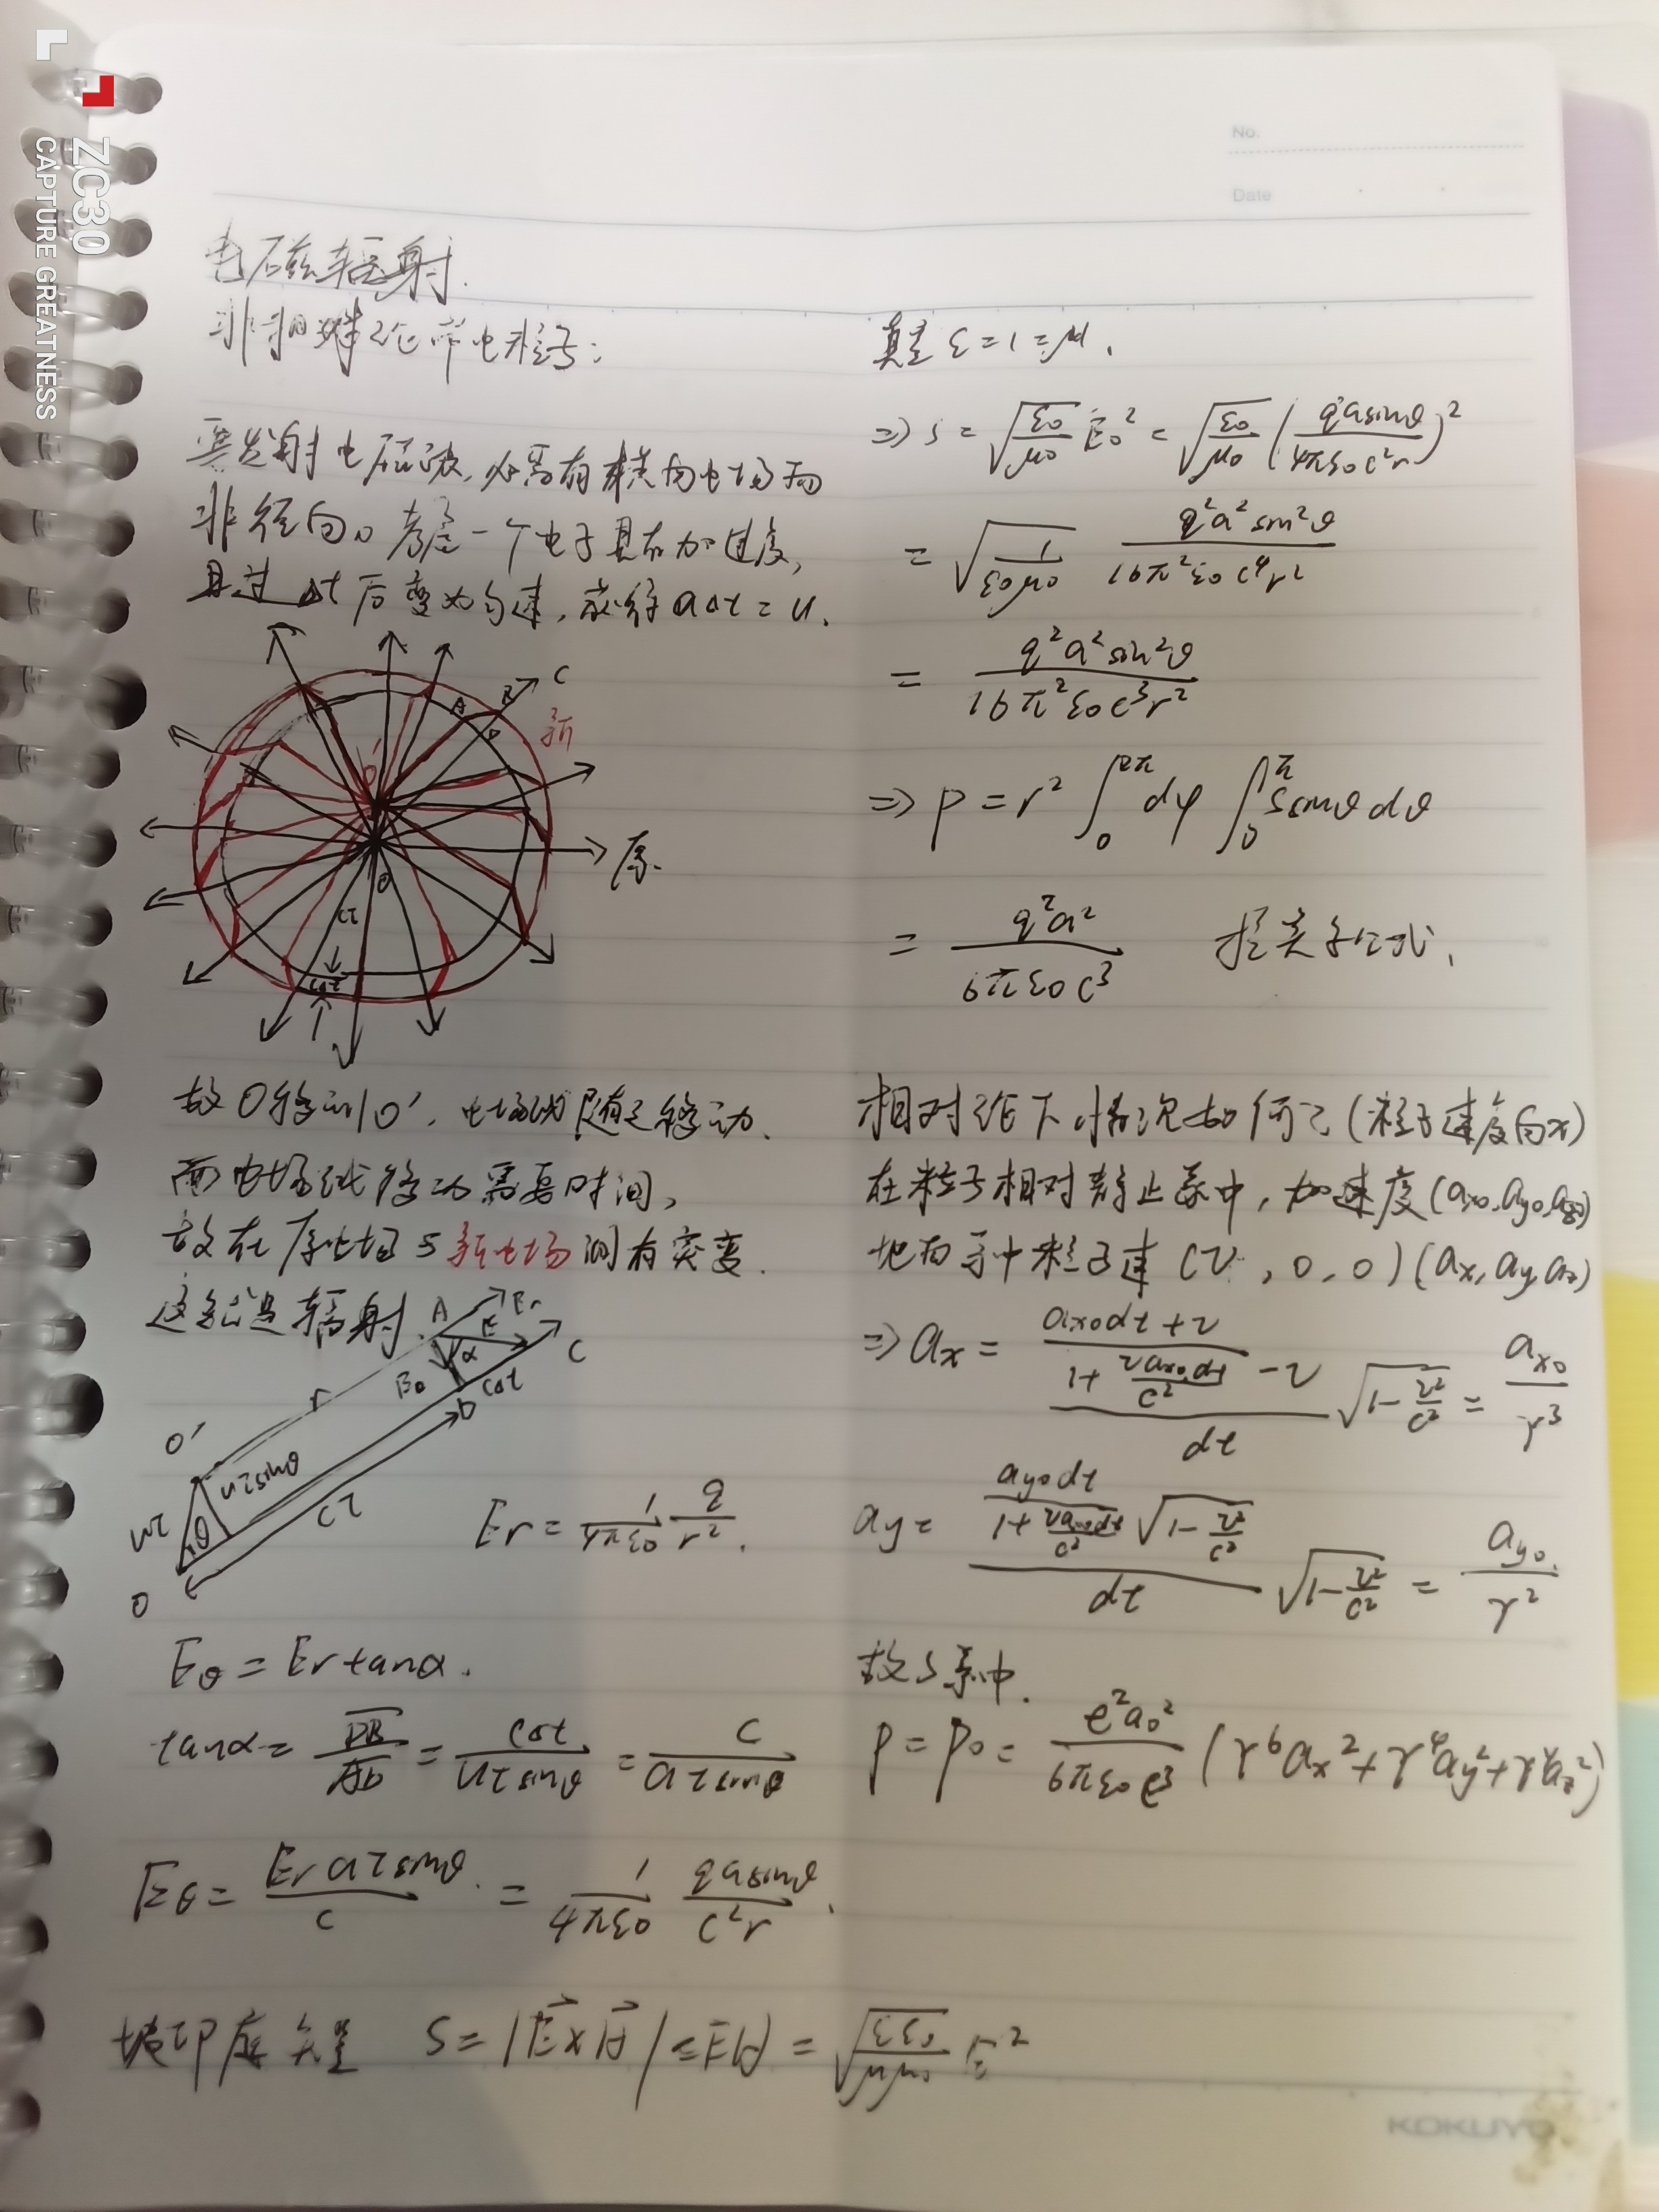 ZC30
CAPTURE GREATNESS
No.
Date
电磁辐射.
非相对论带电粒子:
要发射电磁波,必需有横向电场而
非径向。考虑一个电子具有加速度,
且过Δt后变为匀速,故有aΔt=u.
A B C
新
O'
原.
O
cτ
cΔt
故O移动到O',电场线随之移动.
而电场线移动需要时间,
故在原电场与新电场间有突变.
这就是辐射.
A Er
E
α
C
cΔt
D
r
O'
uτsinθ
uτ
θ
cτ
O
Er = 1/4πε0 q/r².
Eθ = Er tanα.
tanα = DB/AD = cΔt/uτsinθ = c/aτsinθ
Eθ = Er aτsinθ/c = 1/4πε0 qasinθ/c²r.
坡印廷矢量 S = |E×H| = EH = √(εε0/μμ0) E²
真空 ε=1=μ.
⇒ S = √(ε0/μ0) E0² = √(ε0/μ0) (qasinθ/4πε0c²r)²
= √(1/ε0μ0) q²a²sin²θ/16π²ε0c⁴r²
= q²a²sin²θ/16π²ε0c³r²
⇒ P = r² ∫₀^2π dφ ∫₀^π S sinθ dθ
= q²a²/6πε0c³ 拉莫尔公式.
相对论下情况如何?(粒子速度向x)
在粒子相对静止系中,加速度(ax0,ay0,az0)
地面系中粒子速(v,0,0)(ax,ay,az)
⇒ ax = ((ax0dt+v)/(1+vax0dt/c²) - v)/dt √(1-v²/c²) = ax0/γ³
ay = (ay0dt/(1+vax0dt/c²) √(1-v²/c²))/dt √(1-v²/c²) = ay0/γ²
故S系中.
P = P0 = e²a0²/6πε0c³ (γ⁶ax²+γ⁴ay²+γ⁴az²)
KOKUYO